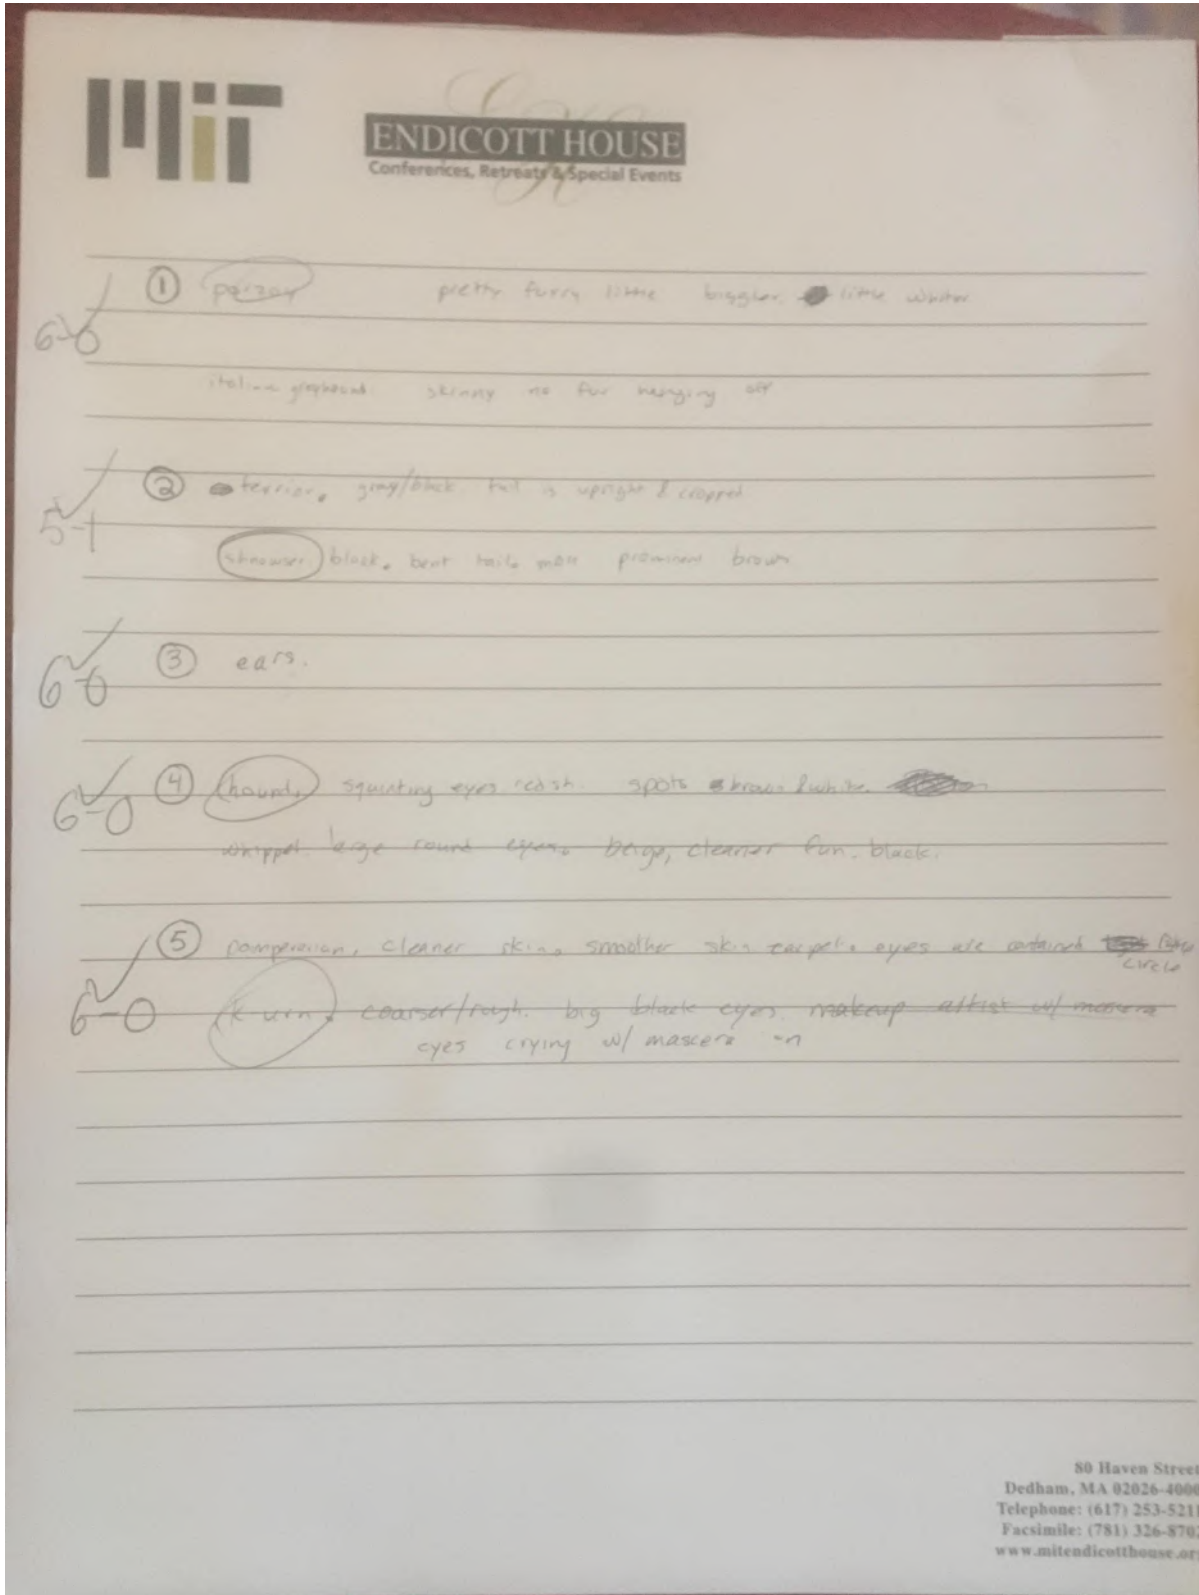 MIT
ENDICOTT HOUSE
Conferences, Retreats & Special Events
① porzoy pretty furry little biggler. little whiter
6-0
italian greyhound. skinny no fur hanging off
② terrier. gray/black tail is upright & cropped
5-1
shnowser black. bent tail. more prominent brown
③ ears.
6-0
④ hound. squinting eyes. redish. spots brown & white.
6-0
whippet. large round eyes. beige, cleaner fur. black.
⑤ pomperanian, cleaner skin. smoother skin carpet. eyes are contained
circle
6-0
coarser/rough. big black eyes. makeup artist w/ mascera
eyes crying w/ mascera on
80 Haven Street
Dedham, MA 02026-4000
Telephone: (617) 253-5211
Facsimile: (781) 326-8702
www.mitendicotthouse.or